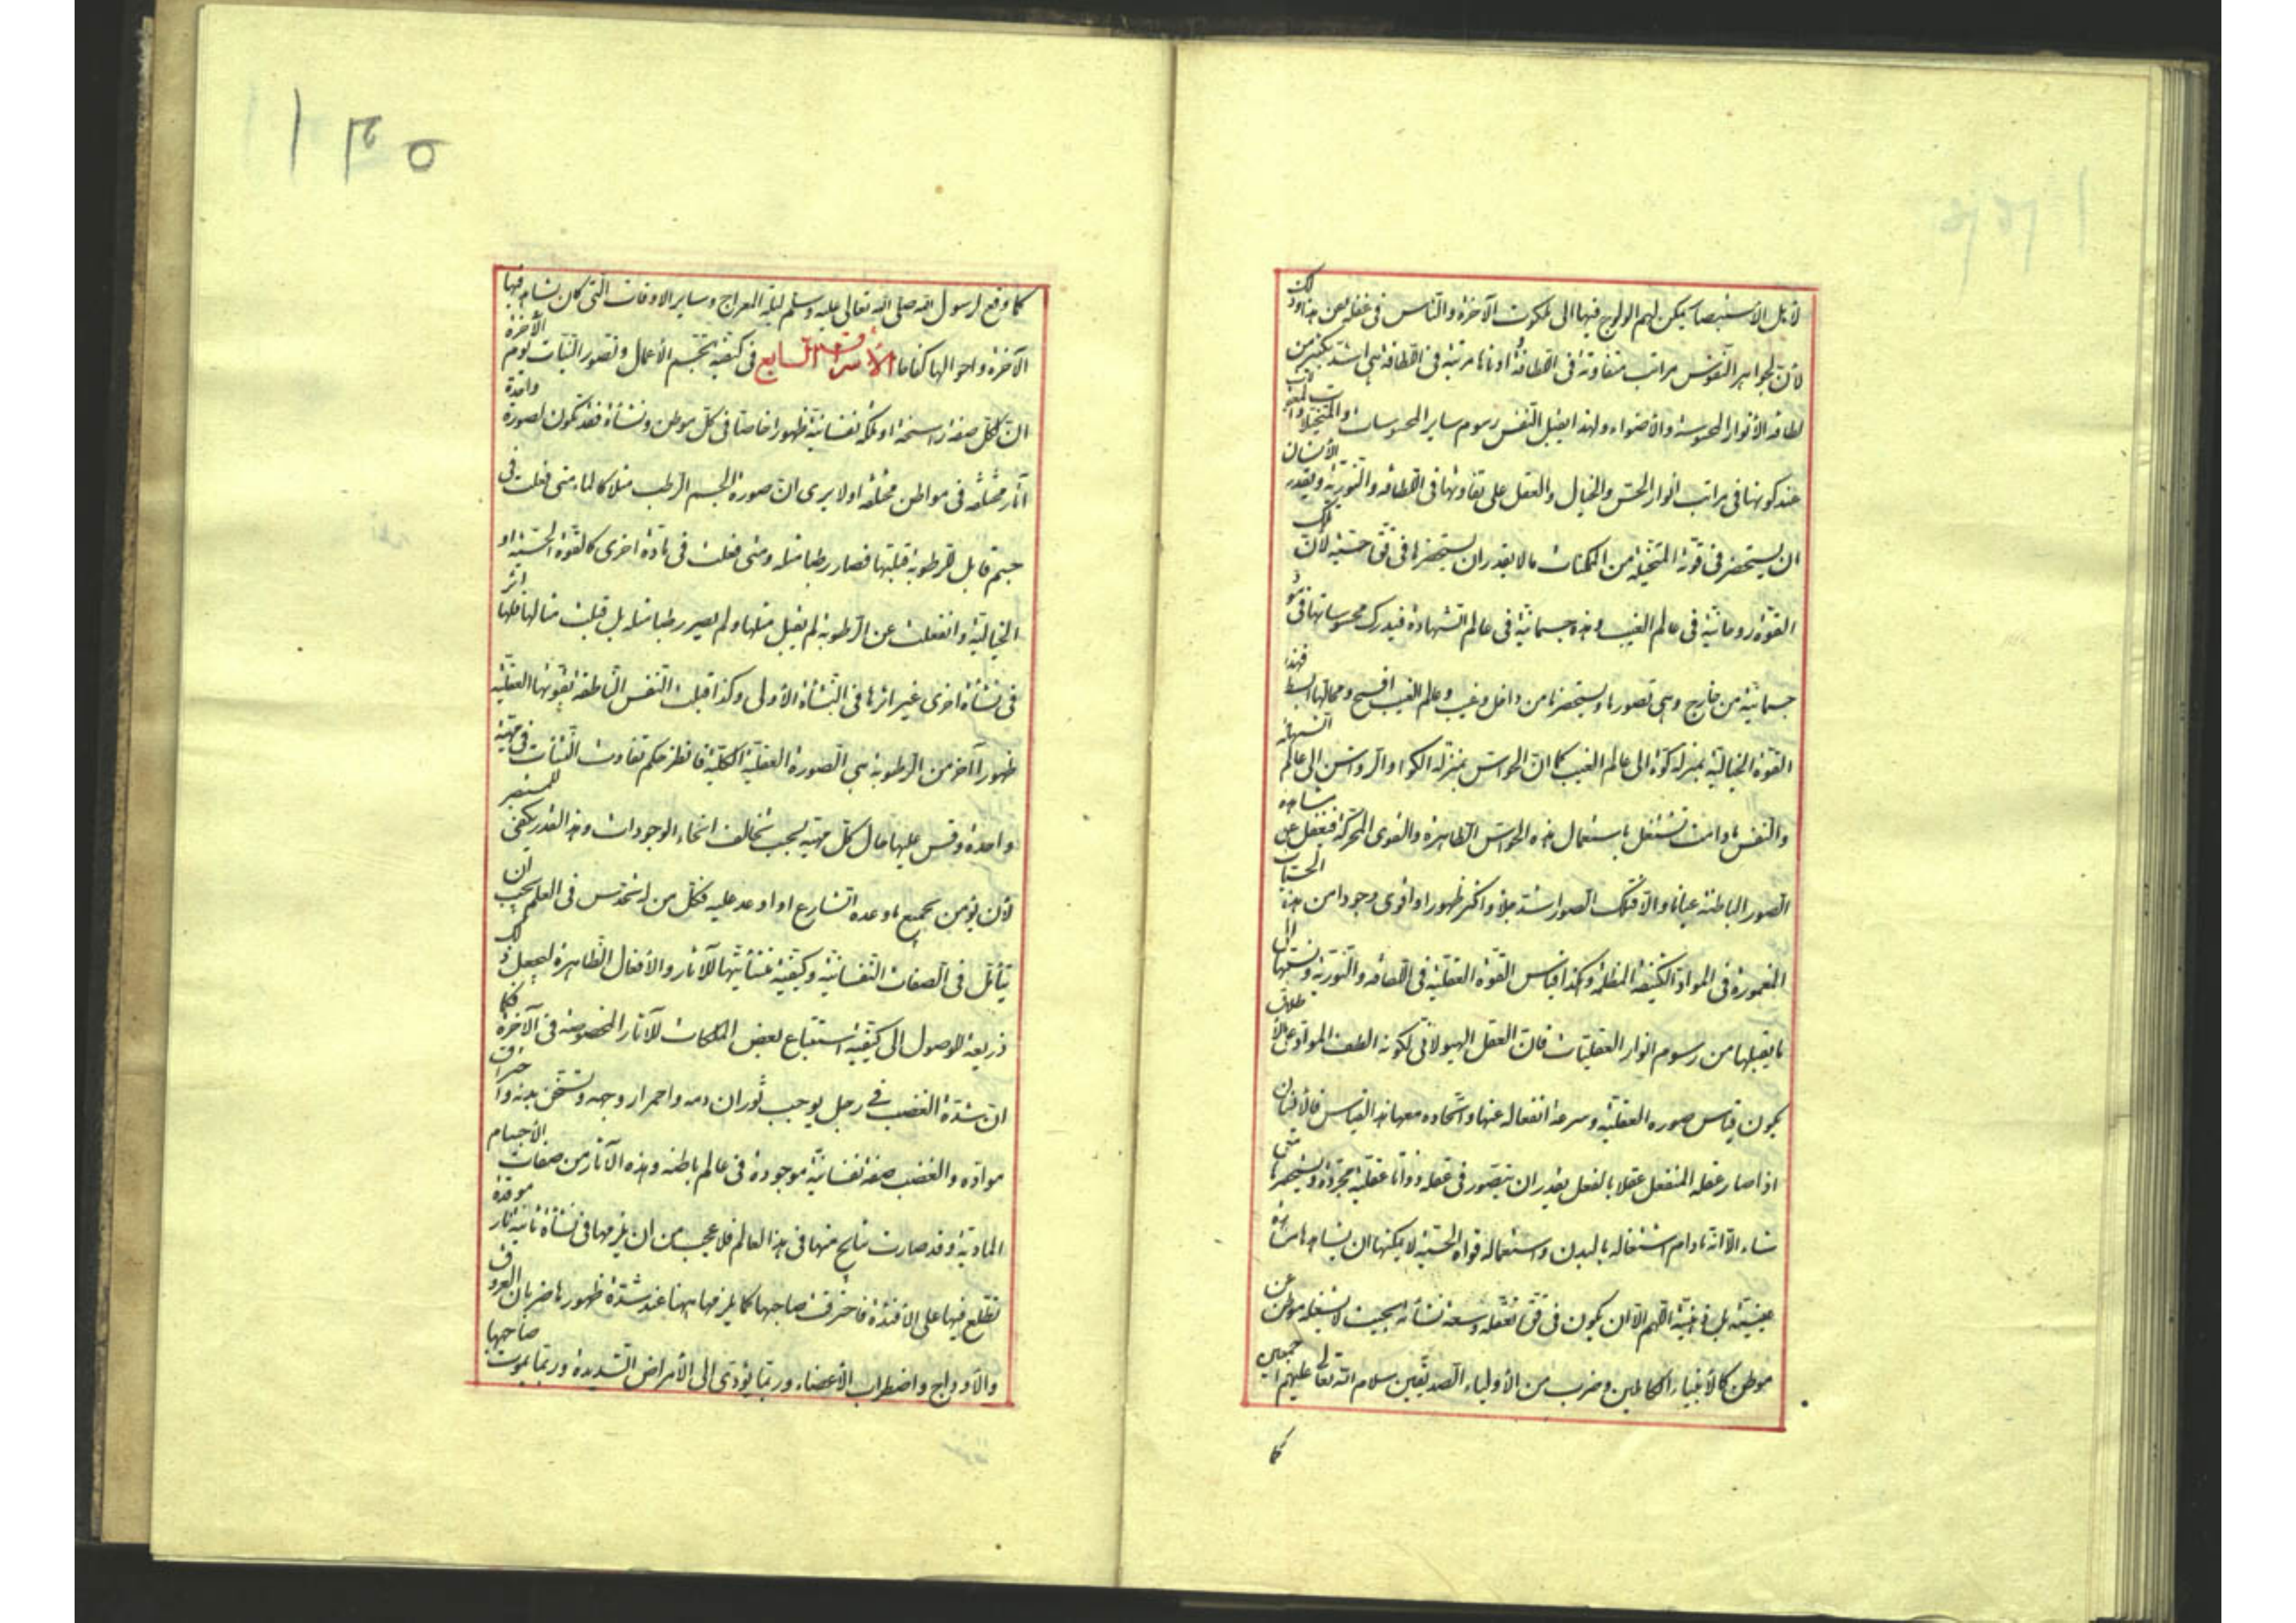 لأهل الأستبصار يمكن لهم الولوج فيها الى ملكوت الآخرة والناس فى غفلة عن هذا وذلك
لأن لجواهر النفوس مراتب متفاوتة فى اللطافة وأدناها مرتبة فى اللطافة هى اشد بكثير من
لطافة الأنوار المحسوسة والأضواء ولهذا يقبل النفس رسوم ساير المحسوسات والمتخيلات والمعقولات
عند كونها فى مراتب انوار الحس والخيال والعقل على تفاوتها فى اللطافة والنورية ويقدر الأنسان
ان يستحضر فى قوته المتخيلة من الممكنات ما لا يقدر ان يستحضرها فى قوته حسية لأن تلك
القوة روحانية فى عالم الغيب وهذه جسمانية فى عالم الشهادة فيدرك محسوساتها فى مواد
جسمانية من خارج وهى تصورها ويستحضرها من داخل وغيب وعالم الغيب افسح ومجالها ابسط فهذه
القوة الخيالية بمنزلة كوة الى عالم الغيب كما ان الحواس بمنزلة الكوا والرواشن الى عالم الشهادة
والنفس مادامت تشتغل باستعمال هذه الحواس الظاهرة والقوى المحركة فيغفل عن مشاهدة
الصور الباطنة عيانا والا فتلك الصور اشد جلاء واكثر ظهورا واقوى وجودا من هذه الحسيات
المغمورة فى المواد الكثيفة المظلمة وهكذا قياس القوة العقلية فى اللطافة والنورية ونسبتها الى
ما يقبلها من رسوم انوار العقليات فان العقل الهيولانى لكونه الطف المواد على الأطلاق
يكون قياس صوره العقلية وسرعة انفعاله عنها واتحاده معها هذا القياس فالأنسان
اذا صار عقله المنفعل عقلا بالفعل يقدر ان يتصور فى عقله ذواتا عقلية مجردة ويستحضرها متى
شاء الا انه مادام اشتغاله بالبدن واستعماله قواه الحسية لا يمكنها ان يشاهدها مشاهدة
عينية بل ذهنية اللهم الا ان يكون فى قوة تعقله وسعة نشأته بحيث لا يشغله موطن عن
موطن كالأنبياء الكاملين وضرب من الأولياء الصديقين سلام الله تعالى عليهم اجمعين
كما
١٢٥
كما وقع لرسول الله صلى الله تعالى عليه وسلم ليلة المعراج وساير الاوقات التى كان يشاهد فيها
الآخرة واحوالها كفاحا الأشراق السابع فى كيفية تجسم الأعمال وتصور النيات يوم الآخرة
ان لكل صفة راسخة او ملكة نفسانية ظهورا خاصا فى كل موطن ونشأة فقد تكون لصورة واحدة
آثار مختلفة فى مواطن مختلفة اولا يرى ان صورة الجسم الرطب مثلا كالماء متى فعلت فى
جسم قابل للرطوبة قبلتها فصار رطبا مثله ومتى فعلت فى مادة اخرى كالقوة الحسية او
الخيالية وانفعلت عن الرطوبة لم يقبل مثلها ولم يصير رطبا مثله بل قبلت مثالها فلها اثر
فى نشأة اخرى غير اثرها فى النشأة الأولى وكذا قبلت النفس الناطقة بقوتها العقلية
ظهورا آخر من الرطوبة هى الصورة العقلية الكلية فانظر حكم تفاوت النشآت فى مهية
واحدة وقس عليها حال كل مهية بحسب تخالف انحاء الوجودات وهذا القدر يكفى للمستبصر
لأن يؤمن بجميع ما وعده الشارع او اوعد عليه فكل من له تحدس فى العلم يجب ان
يتأمل فى الصفات النفسانية وكيفية منشأيتها للآثار والأفعال الظاهرة ليجعل ذلك
ذريعة للوصول الى كيفية استتباع بعض الملكات للآثار المخصوصة فى الآخرة فكما
ان شدة الغضب فى رجل يوجب ثوران دمه واحمرار وجهه وتسخن بدنه واحتراق
مواده والغضب صفة نفسانية موجودة فى عالم باطنه وهذه الآثار من صفات الأجسام
المادية وقد صارت نتايج منها فى هذا العالم فلا عجب من ان يلزمها فى نشأة ثانية نار موقدة
تطلع فيها على الأفئدة فاحترقت صاحبها كما يلزمها هيهنا عند شدة ظهورها ضربان العروق
والأوداج واضطراب الأعضاء وربما يؤدى الى الأمراض الشديدة وربما يموت صاحبها